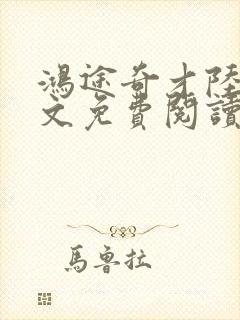 鴻途奇才陸
文免費閱讀
馬魯拉